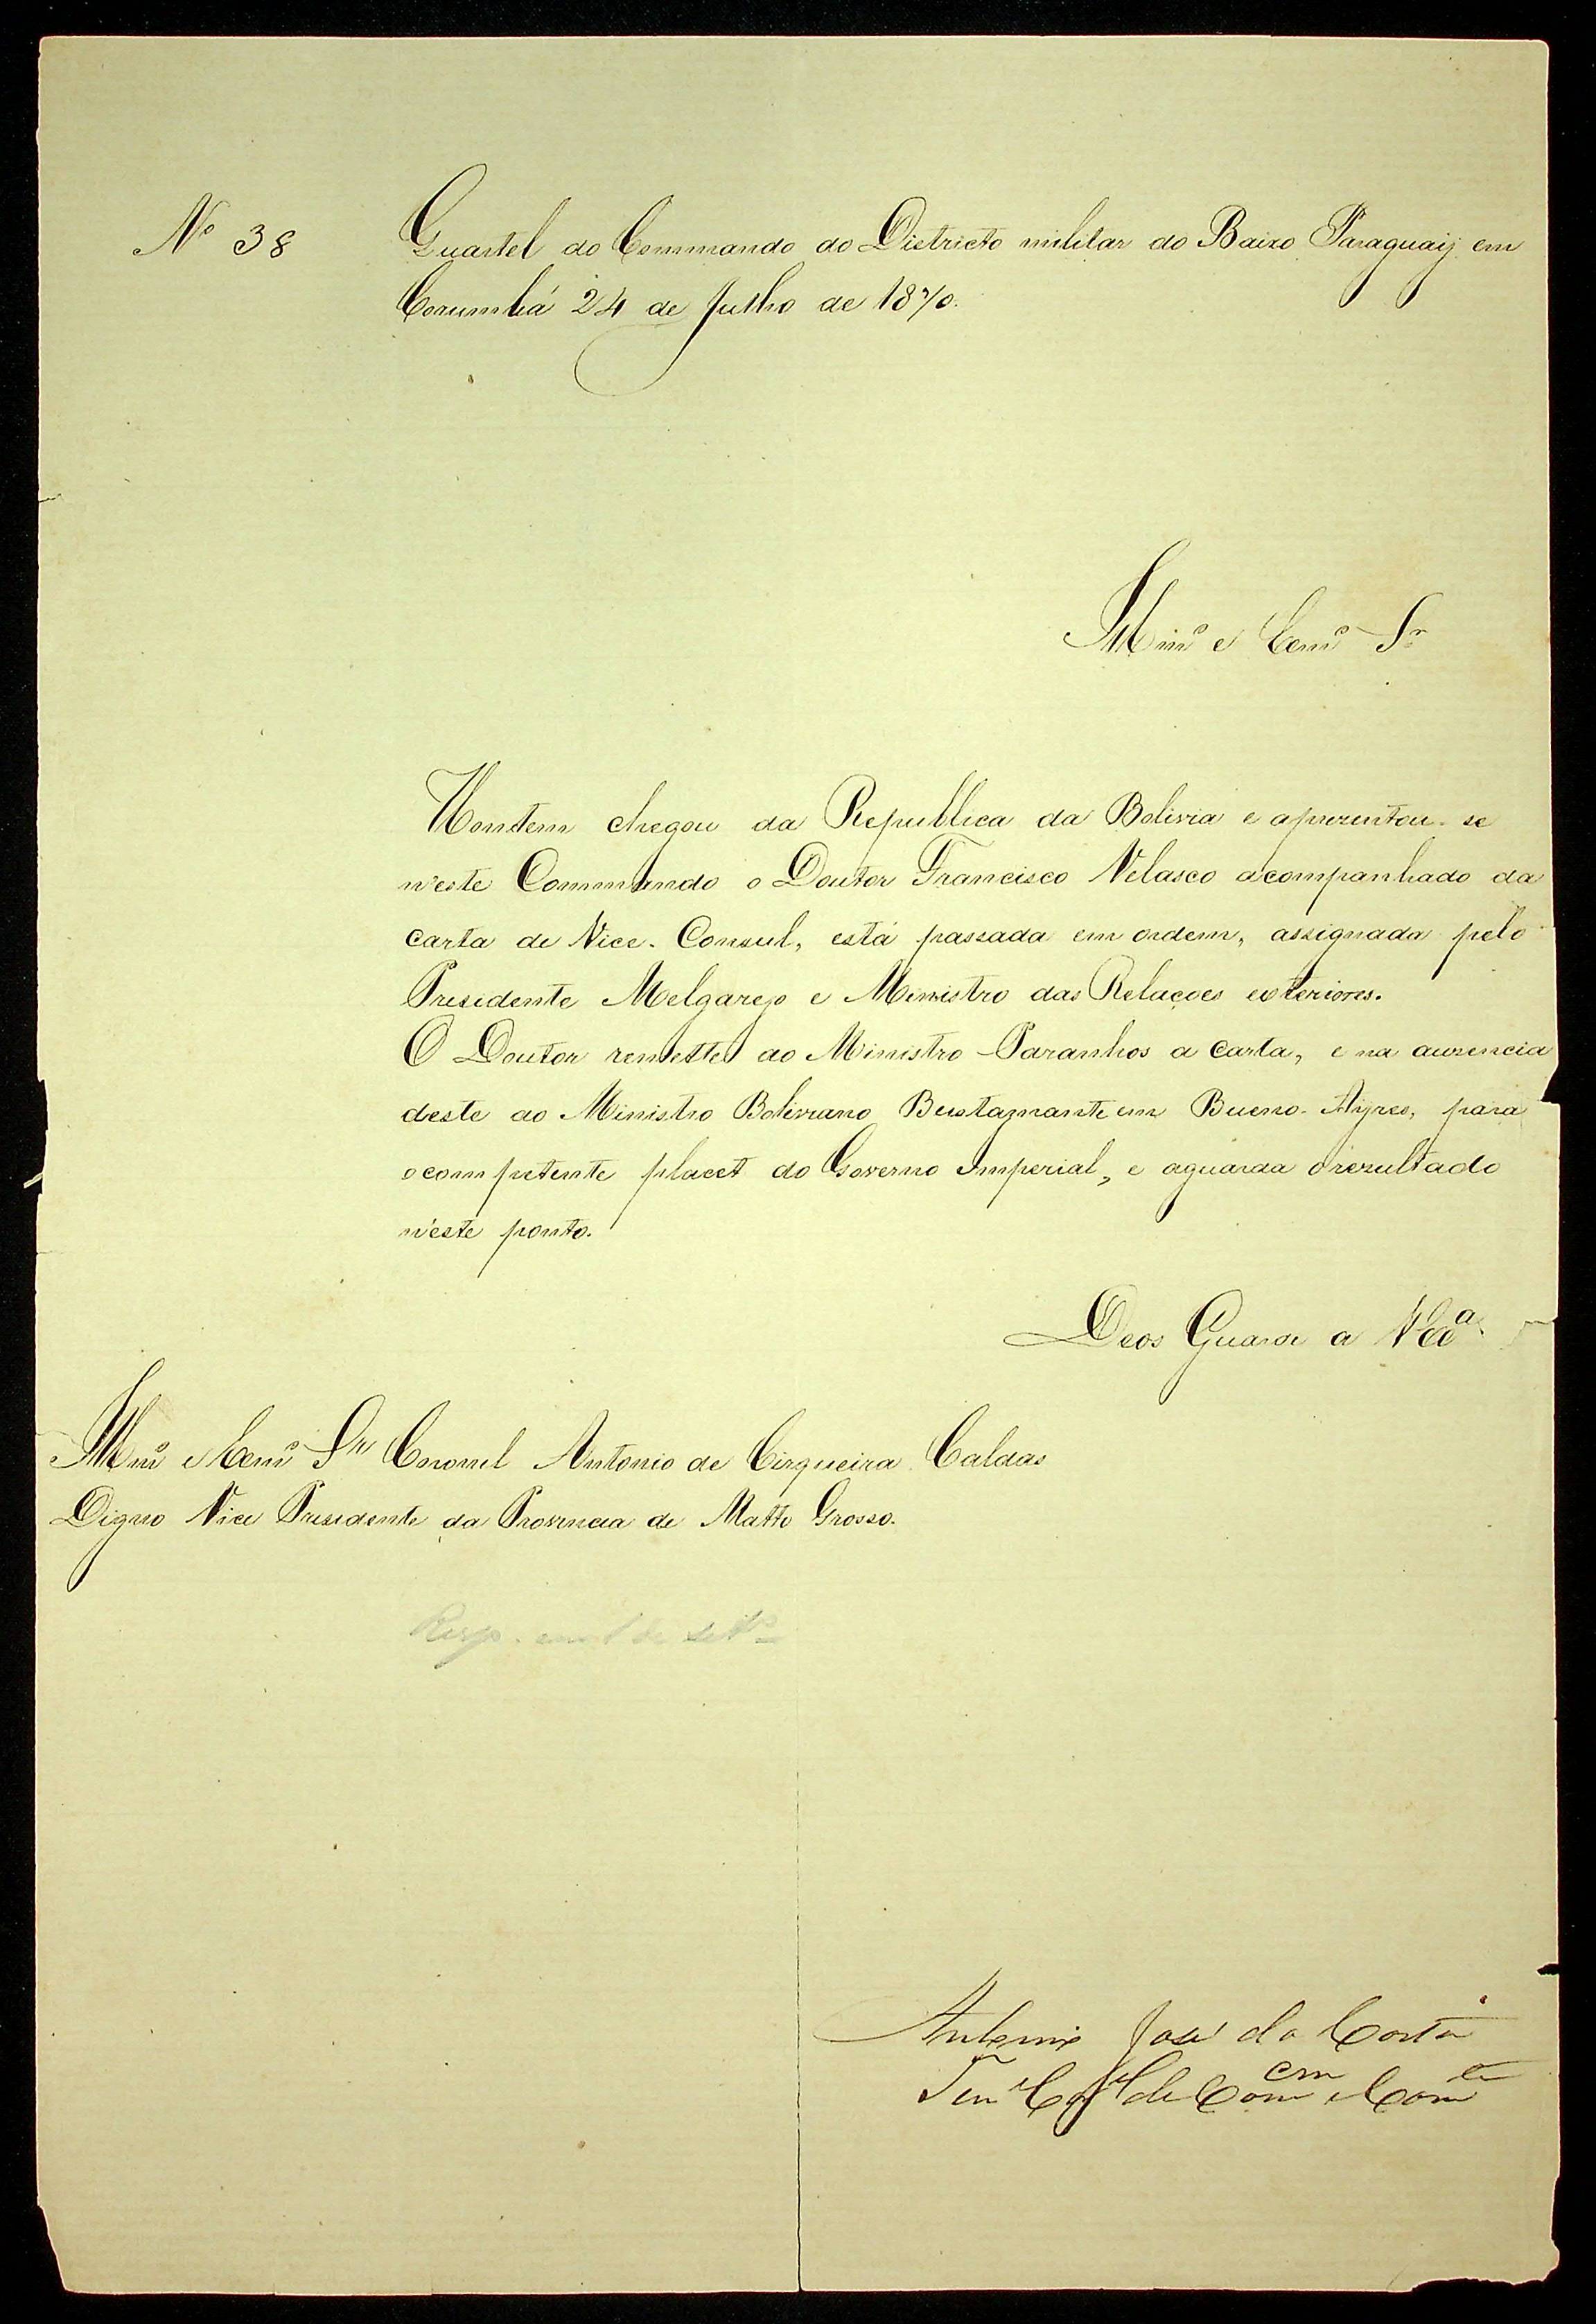 Nº 38
Quartel do Commando do Districto militar do Baixo Paraguaÿ em
Corumbá 24 de Julho de 1870.
Illmº e Exmº Sr
Hontem chegou da Republica da Bolivia e aprezentou-se
n'este Commando o Doutor Francisco Velasco acompanhado da
carta de Vice-Consul, está passada em ordem, assignada pelo
Presidente Melgarejo e Ministro das Relações exteriores.
O Doutor remette ao Ministro Paranhos a carta, e na auzencia
deste ao Ministro Boliviano Bustamante em Bueno-Ayres, para
o competente placet do Governo Imperial, e aguarda o rezultado
n'este ponto.
Deos Guarde a VExª
Illmº e Exmº Snr Coronel Antonio de Cirqueira Caldas
Digno Vice Presidente da Provincia de Matto Grosso.
Resp. em 1 de Setº
Antonio José da Costa
Ten Cel de Comm Comte